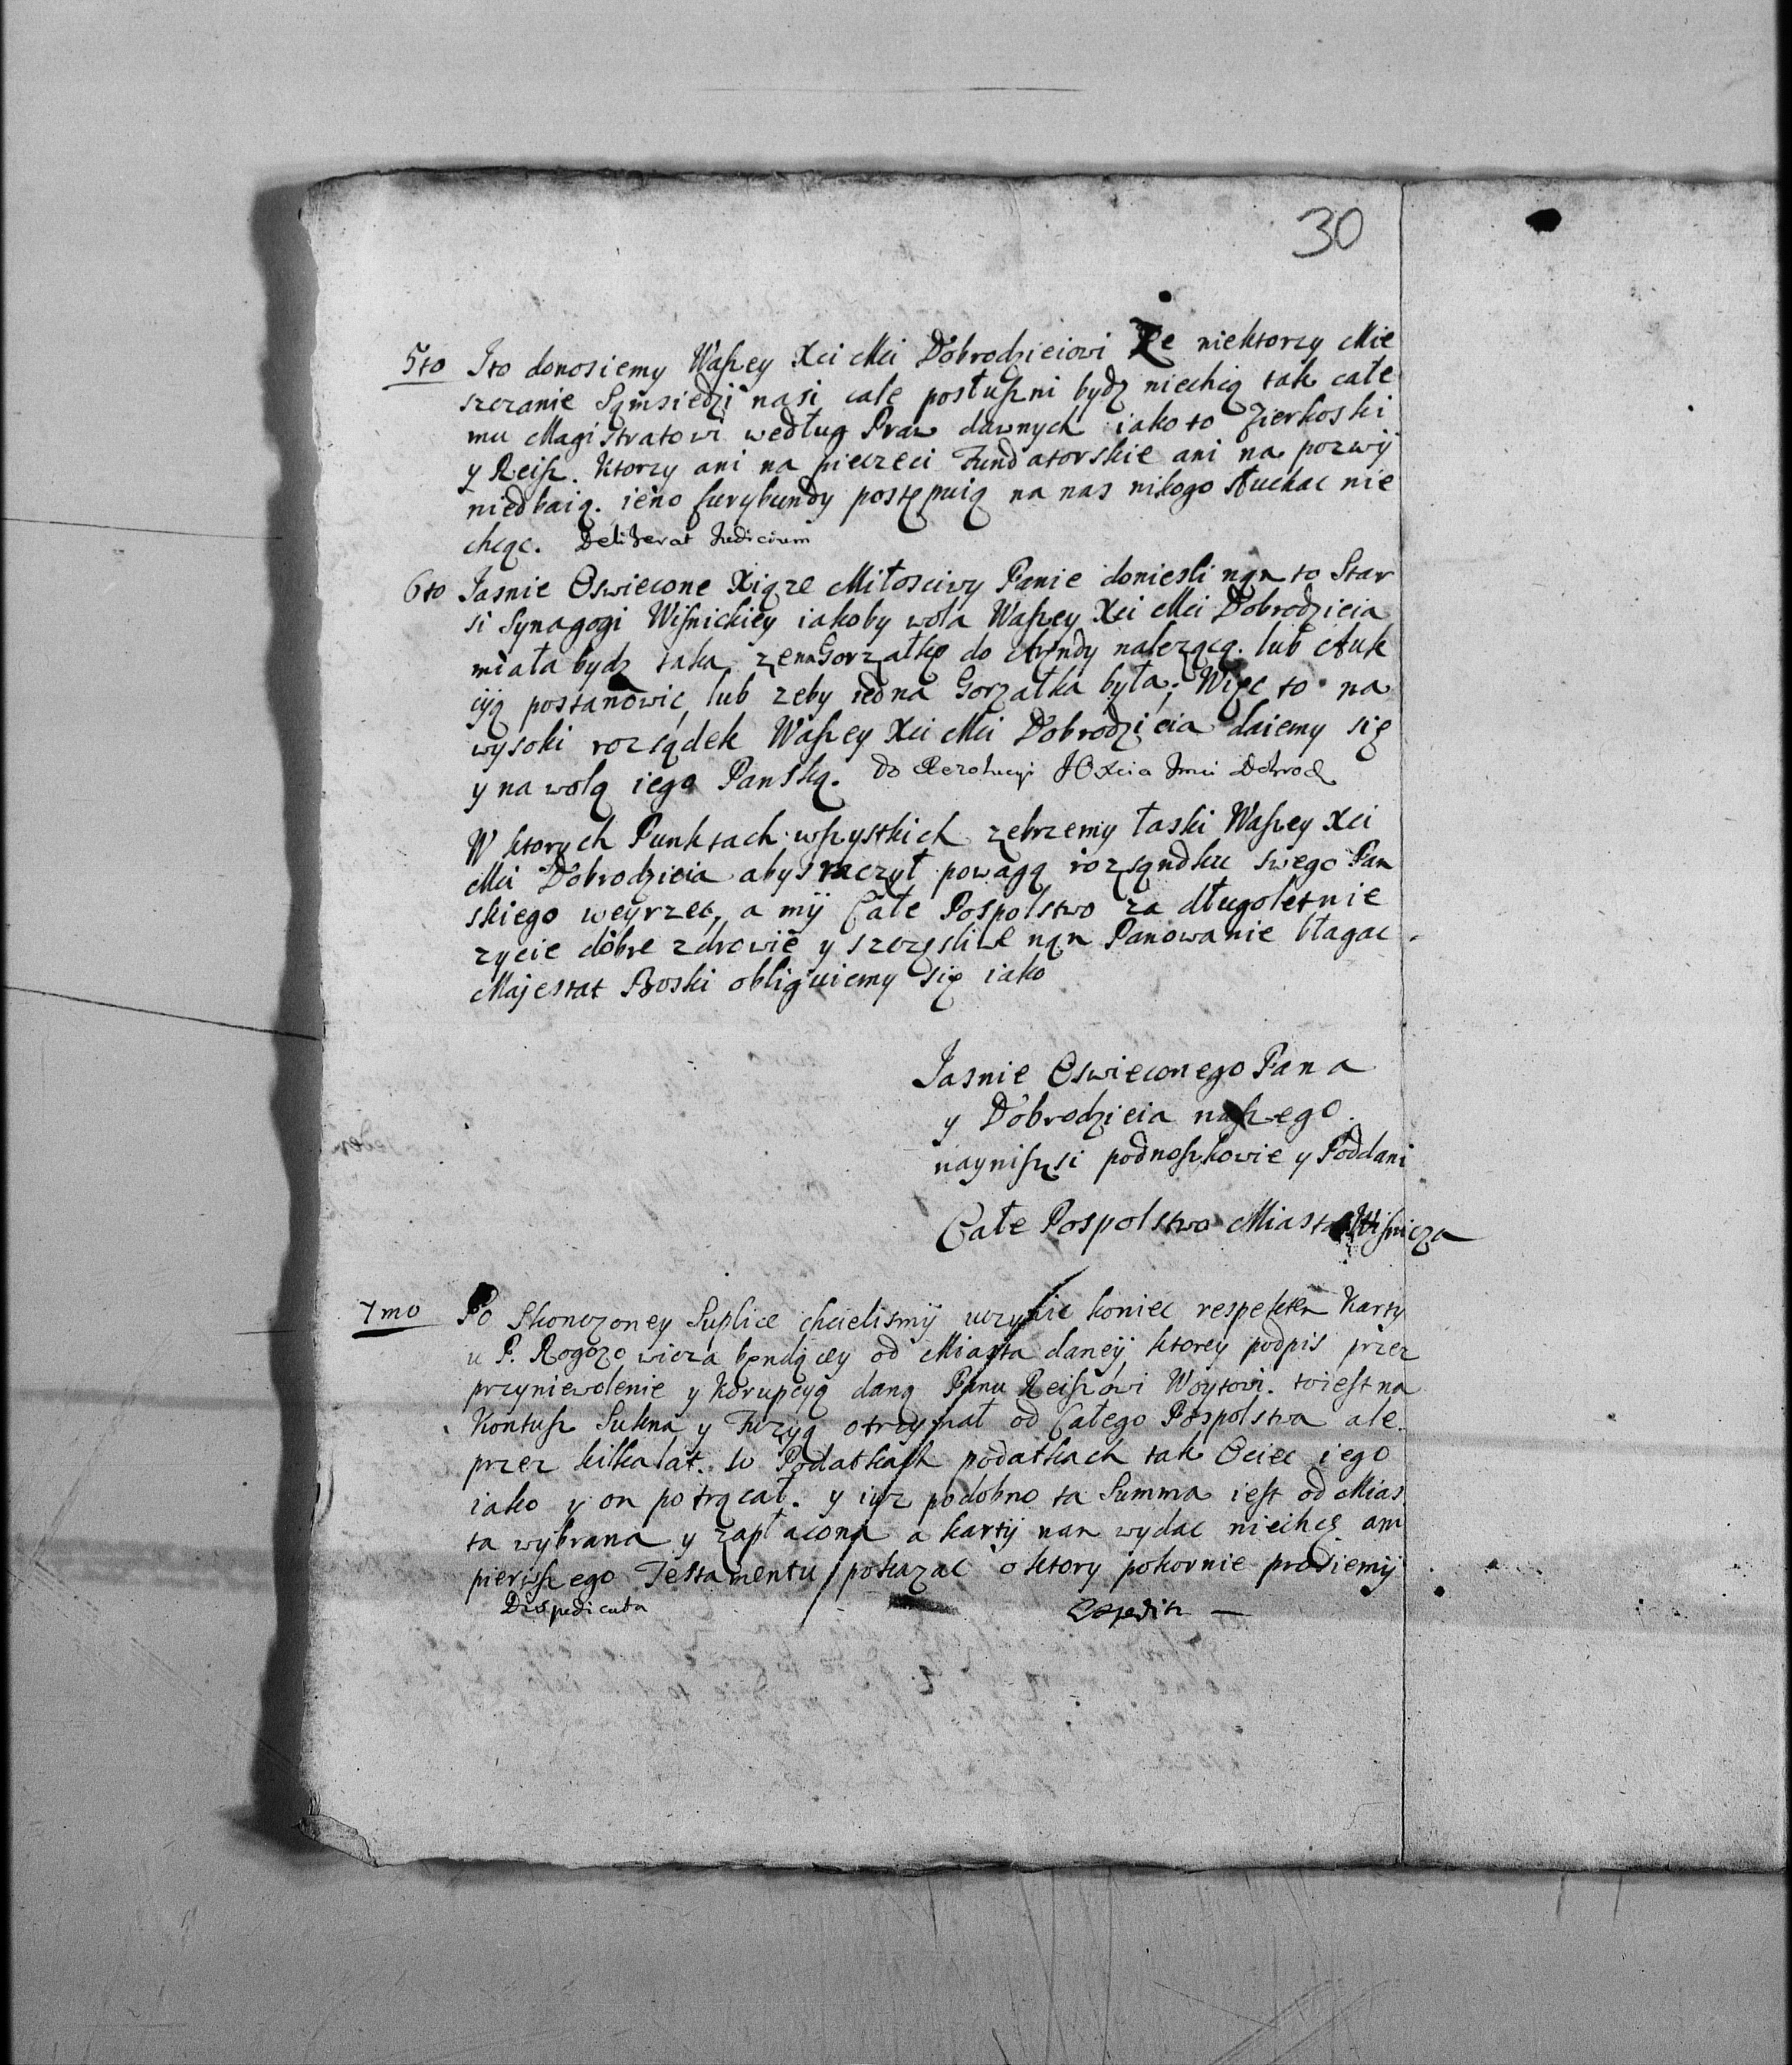 30
5to Ito donosiemy Waszey Xci Mci Dobrodzieiowi Że niektorzy Mie
szczanie Sąmsiedzi nasi cale posłuszni bydz niechcą tak całe
mu Magistratowi według Praw dawnych iako to Zierkoski
y Reisz. Ktorzy ani na pieczeci Fundatorskie ani na pozwÿ
niedbaią. ieno furybundy postępuią na nas nikogo słuchac nie
chcąc. Deliberat Judicium
6to Jasnie Oswiecone Xiąze Miłosciwy Panie doniesli nąn to Star
si Synagogi Wisnickiey iakoby wola Waszey Xci Mci Dobrodzieia
miała bydz taka, zena Gorzałkę do Arendy nalezącą. lub Auk
cÿą postanowic, lub zeby iedna Gorzałka była; Więc to na
wysoki rozsądek Waszey Xci Mci Dobrodzieia daiemy się
y na wolą iego Panską. Do Rezolucyi JOXcia Jmci Dobrod
W ktorych Punktach wszystkich zebrzemy łaski Waszey Xci
Mci Dobrodzieia abys raczył powagą rozsąndku swego Pan
skiego weyrzec, a mÿ Całe Pospolstwo za długoletnie
zycie dobre zdrowie y szczęsliwe nąn Panowanie błagac
Majestat Boski obliguiemy się iako
Jasnie Oswieconego Pana
y Dobrodzieia naszego
naynisżsi podnoszkowie y Poddani
Całe Pospolstwo Miasta Wisnicza
7mo Po Skonczoney Suplice chcielismÿ uczynic koniec respektem Karty
u P. Rogozowicza bęndącey od Miasta daneÿ ktorey podpis przez
przyniewolenie y Korupcyą daną Panu Reiszowi Woytowi. toiest na
Kontusz Sukna y Fuzyą otrzymał od Całego Pospolstwa ale
przez kilka lat. w Podatkach podatkach tak Ociec iego
iako y on potrącał. y iuz podobno ta Summa iest od Mias
ta wybrana y zapłacona a kartÿ nan wydac niechcę ani
pierwszego Testamentu pokazac o ktory pokornie prosiemÿ